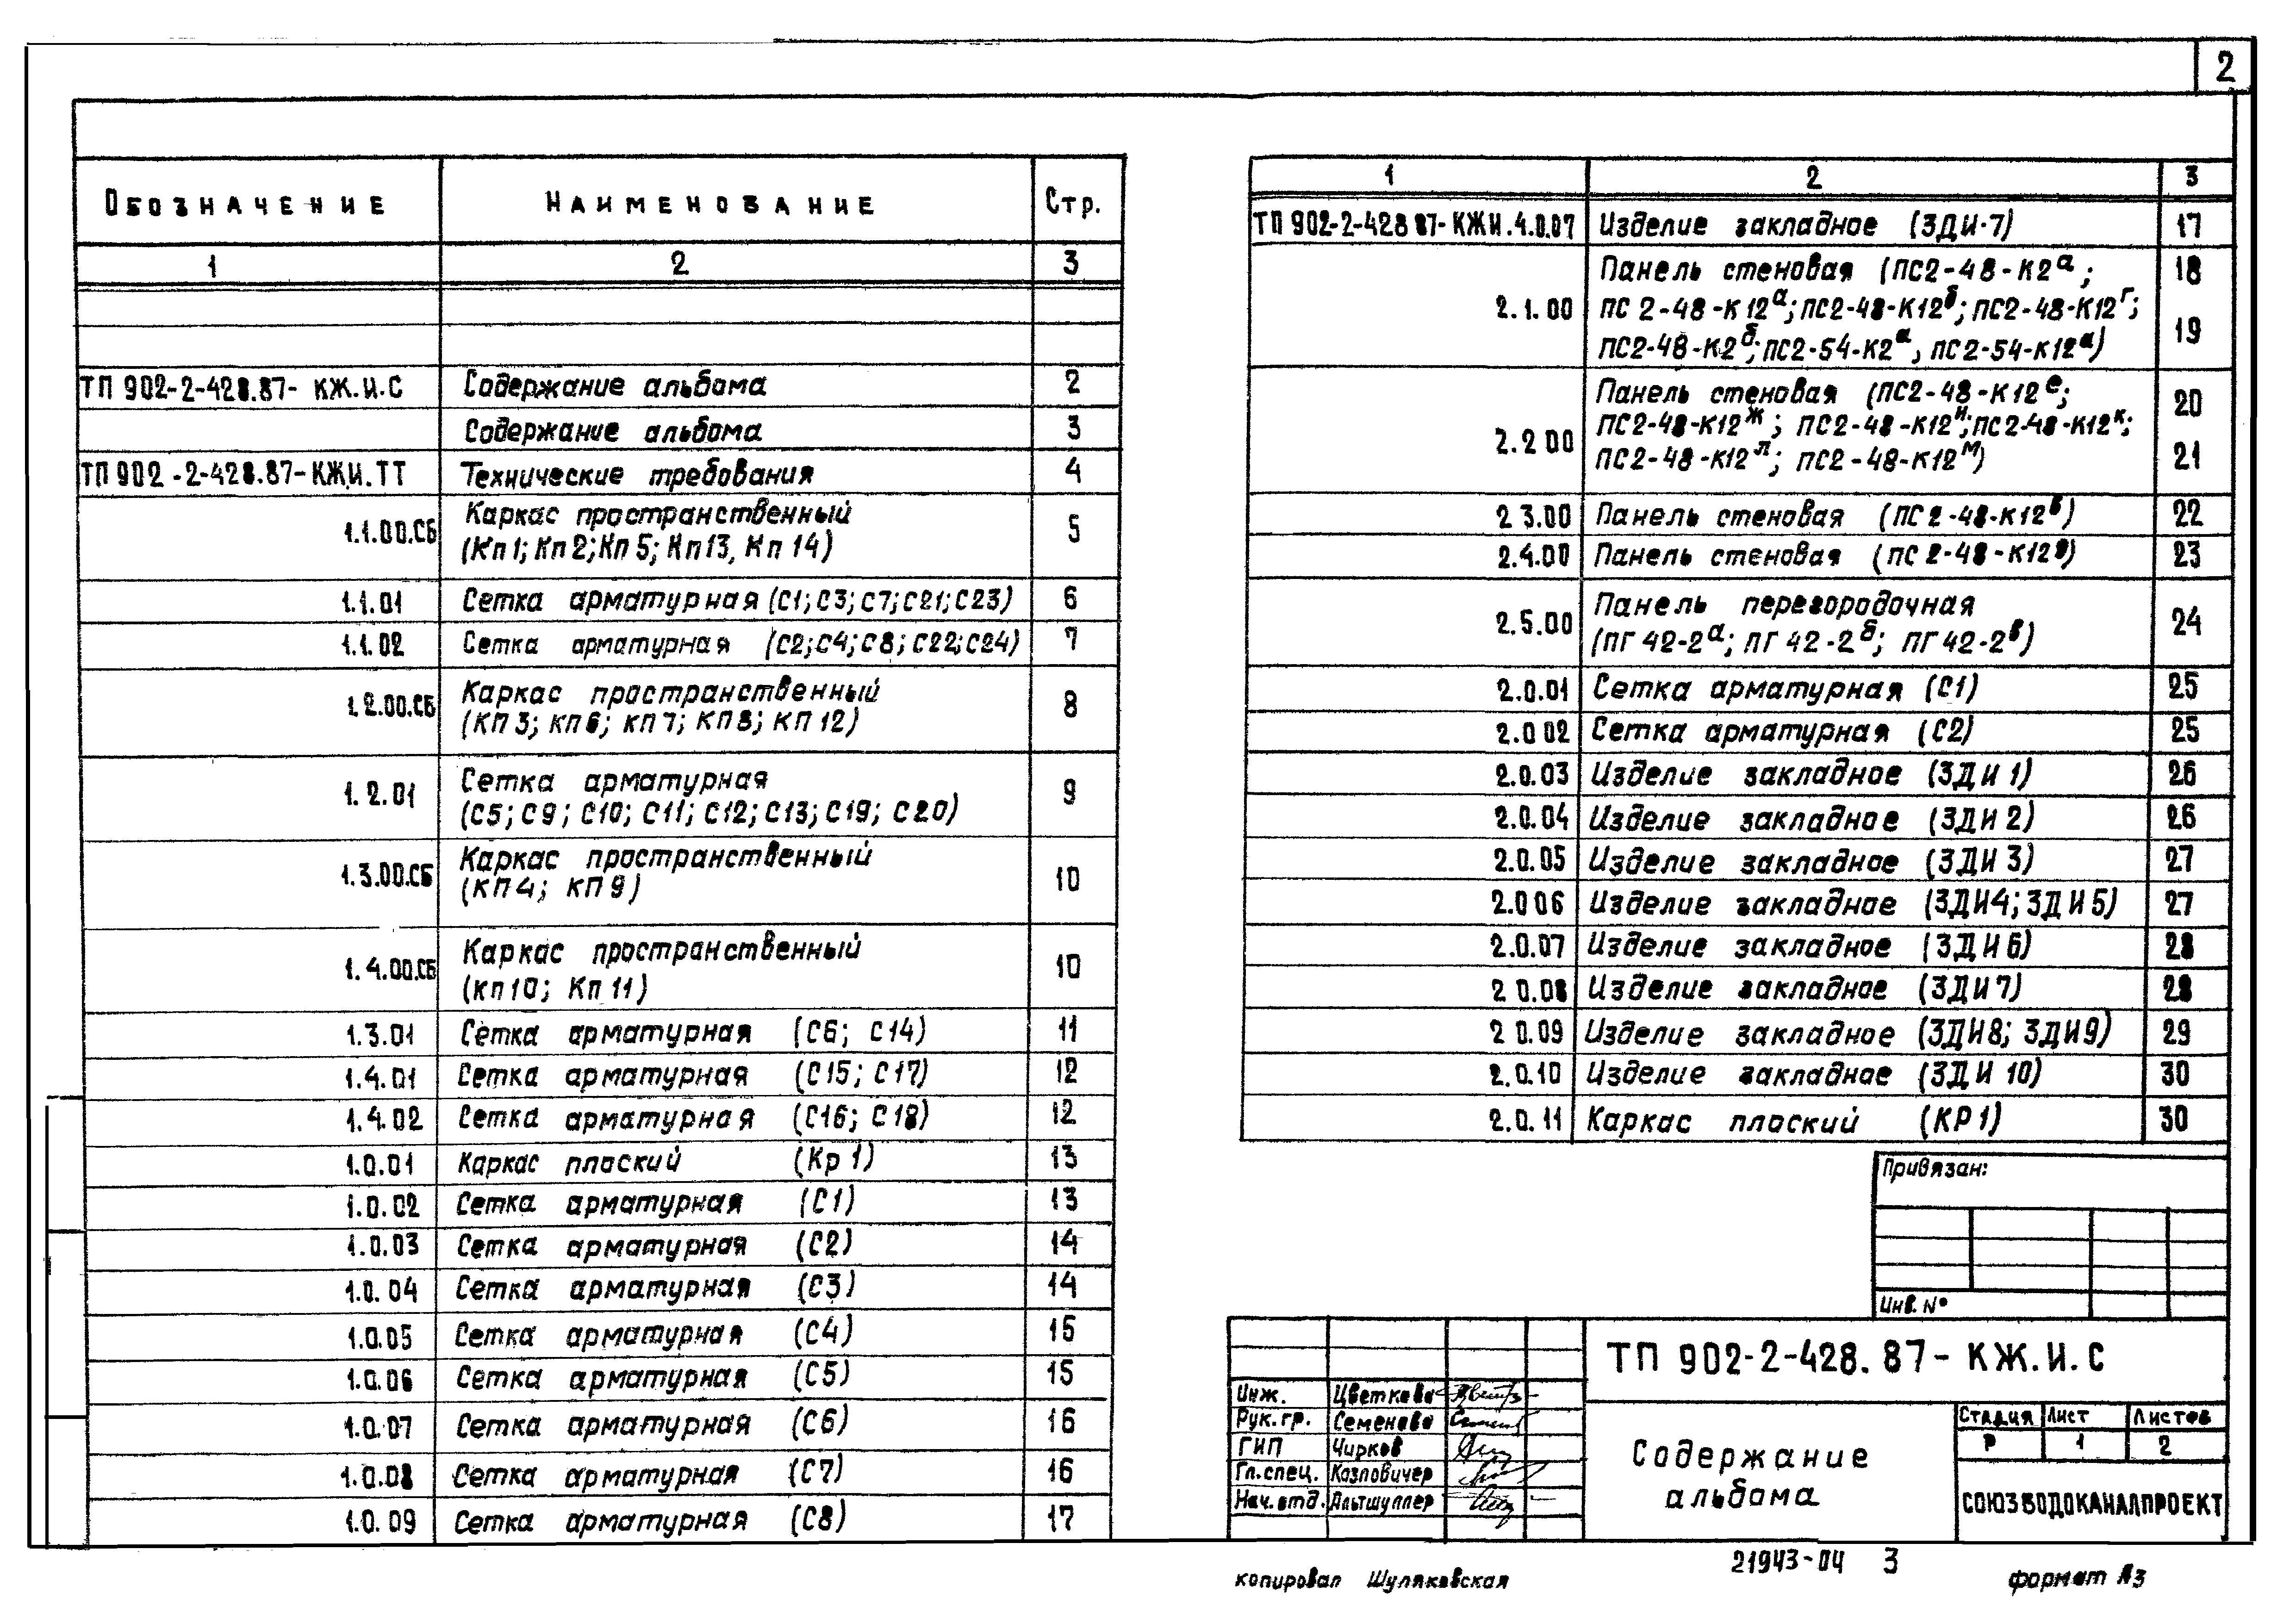 2
Обозначение Наименование Стр.
1 2 3
ТП 902-2-428.87- КЖ.И.С Содержание альбома 2
Содержание альбома 3
ТП 902-2-428.87-КЖ.И.ТТ Технические требования 4
1.1.00.СБ Каркас пространственный 5
(Кп1; Кп2; Кп5; Кп13, Кп14)
1.1.01 Сетка арматурная (С1; С3; С7; С21; С23) 6
1.1.02 Сетка арматурная (С2; С4; С8; С22; С24) 7
1.2.00.СБ Каркас пространственный 8
(КП3; КП6; КП7; КП8; КП12)
1.2.01 Сетка арматурная 9
(С5; С9; С10; С11; С12; С13; С19; С20)
1.3.00.СБ Каркас пространственный 10
(КП4; КП9)
1.4.00.СБ Каркас пространственный 10
(Кп10; Кп11)
1.3.01 Сетка арматурная (С6; С14) 11
1.4.01 Сетка арматурная (С15; С17) 12
1.4.02 Сетка арматурная (С16; С18) 12
1.0.01 Каркас плоский (Кр1) 13
1.0.02 Сетка арматурная (С1) 13
1.0.03 Сетка арматурная (С2) 14
1.0.04 Сетка арматурная (С3) 14
1.0.05 Сетка арматурная (С4) 15
1.0.06 Сетка арматурная (С5) 15
1.0.07 Сетка арматурная (С6) 16
1.0.08 Сетка арматурная (С7) 16
1.0.09 Сетка арматурная (С8) 17
1 2 3
ТП 902-2-428 87-КЖИ.4.0.07 Изделие закладное (ЗДИ-7) 17
Панель стеновая (ПС2-48-К2а; 18
2.1.00 ПС2-48-К12а; ПС2-48-К12б; ПС2-48-К12г;
ПС2-48-К2б; ПС2-54-К2а, ПС2-54-К12а) 19
Панель стеновая (ПС2-48-К12е; 20
2.2 00 ПС2-48-К12ж; ПС2-48-К12и; ПС2-48-К12к;
ПС2-48-К12л; ПС2-48-К12м) 21
2 3.00 Панель стеновая (ПС2-48-К12в) 22
2.4.00 Панель стеновая (ПС2-48-К12д) 23
2.5.00 Панель перегородочная 24
(ПГ42-2а; ПГ42-2б; ПГ42-2в)
2.0.01 Сетка арматурная (С1) 25
2.0 02 Сетка арматурная (С2) 25
2.0.03 Изделие закладное (ЗДИ1) 26
2.0.04 Изделие закладное (ЗДИ2) 26
2.0.05 Изделие закладное (ЗДИ3) 27
2.0 06 Изделие закладное (ЗДИ4; ЗДИ5) 27
2.0.07 Изделие закладное (ЗДИ6) 28
2 0.08 Изделие закладное (ЗДИ7) 28
2 0.09 Изделие закладное (ЗДИ8; ЗДИ9) 29
2.0.10 Изделие закладное (ЗДИ10) 30
2.0.11 Каркас плоский (КР1) 30
Привязан:
Инв. №
ТП 902-2-428.87- КЖ.И.С
Инж. Цветкова
Рук. гр. Семенова
ГИП Чирков
Гл. спец. Казловичер
Нач. отд. Альтшуллер
Содержание
альбома
Стадия Лист Листов
Р 1 2
СОЮЗВОДОКАНАЛПРОЕКТ
21943-04 3
копировал Шуляковская
формат А3